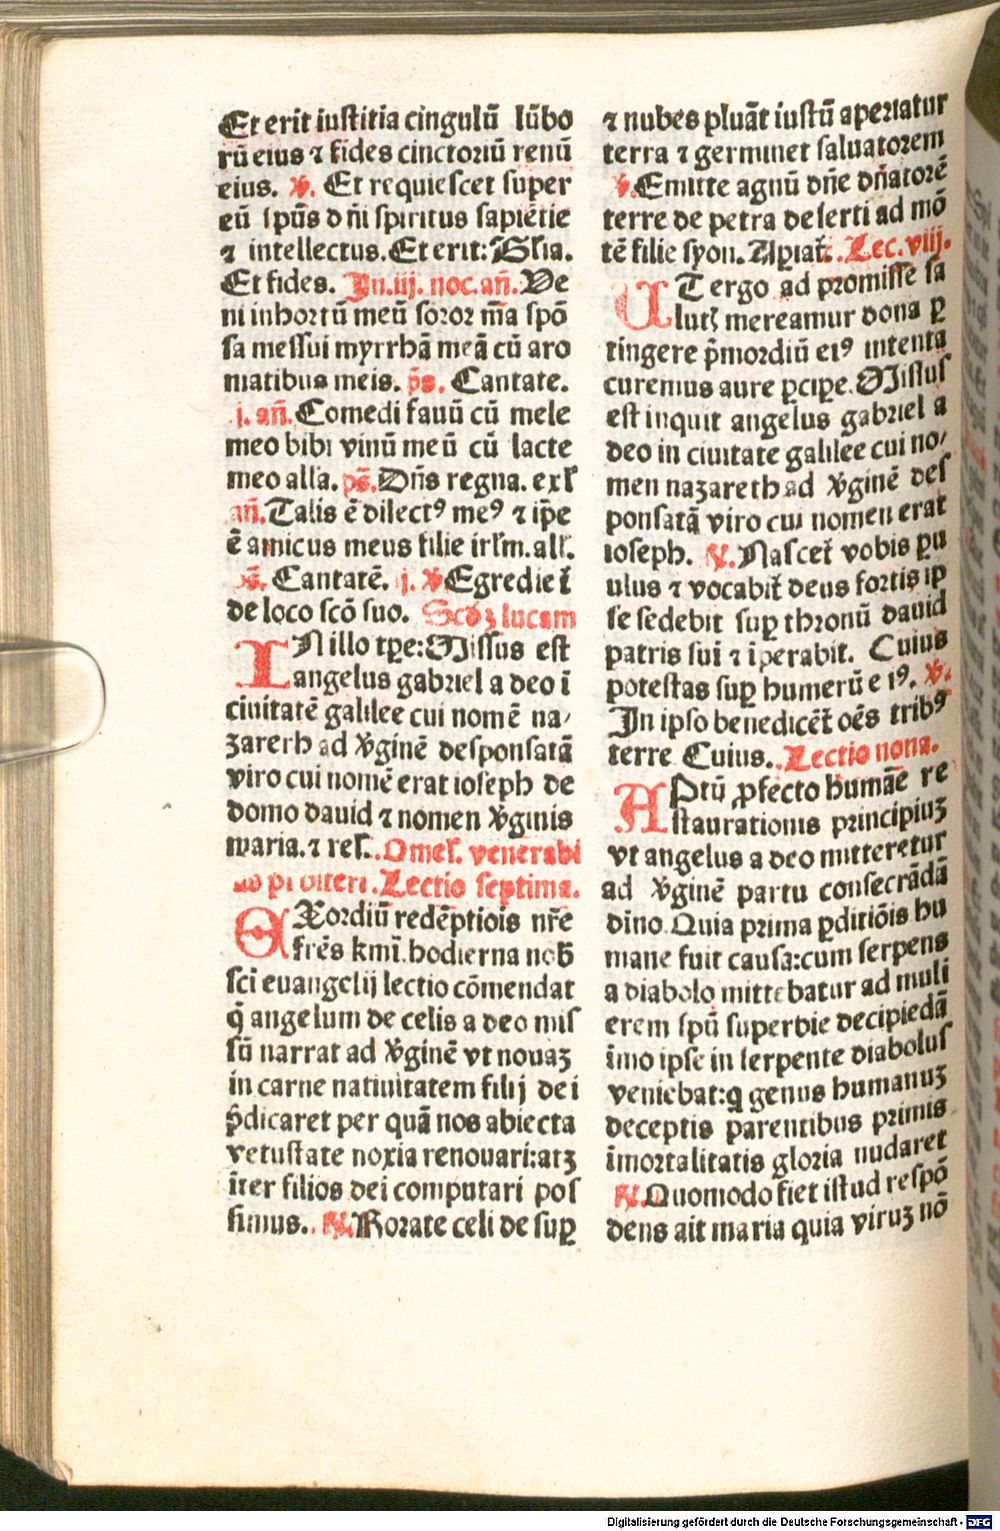 Et erit iustitia cingulū lūbo
rū eius ⁊ fides cinctoriū renū
eius. ℣. Et requiescet super
eū spūs dn̄i spiritus sapiētie
⁊ intellectus. Et erit: Glīa.
Et fides. In .iij. noc. an̄. Ve
ni in hortū meū soror mēa spō
sa messui myrrhā meā cū aro
matibus meis. pš. Cantate.
j. an̄. Comedi fauū cū mele
meo bibi vinū meū cū lacte
meo alľa. pš. Dn̄s regna. exľ
an̄. Talis ē dilectꝰ meꝰ ⁊ ip̄e
ē amicus meus filie irľm. alľ.
Cantatē. j. ℣ Egrediet̄
de loco scō suo. Scdȝ lucam
IN illo tp̄e: Missus est
angelus gabriel a deo ī
ciuitatē galilee cui nomē na⸗
zareth ad v̄ginē desponsatā
viro cui nomē erat ioseph de
domo dauid ⁊ nomen v̄ginis
maria. ⁊ reľ. Omeľ. venerabi
lis p̄sbiteri. Lectio septima.
EXordiū redēptiois nr̄e
frēs kmī. hodierna nob̄
sc̄i euangelij lectio cōmendat
q̄ angelum de celis a deo mis
sū narrat ad v̄ginē vt nouaȝ
in carne natiuitatem filij dei
p̄dicaret per quā nos abiecta
vetustate noxia renouari: atȝ
īter filios dei computari pos
simus. ℟. Rorate celi de suꝑ
⁊ nubes pluāt iustū aperiatur
terra ⁊ germinet saluatorem
℣. Emitte agnū dn̄e dn̄atorē
terre de petra deserti ad mō
tē filie syon. Aꝑiat̄. Lec. viij.
UT ergo ad promisse sa
lutȝ mereamur dona ꝑ
tingere p̄mordiū eiꝰ intenta
curemus aure ꝑciꝑe. Missus
est inquit angelus gabriel a
deo in ciuitate galilee cui no⸗
men nazareth ad v̄ginē des
ponsatā viro cui nomen erat
ioseph. ℟. Nascet̄ vobis ꝑu
ulus ⁊ vocabit̄ deus fortis ip
se sedebit suꝑ thronū dauid
patris sui ⁊ īperabit. Cuius
potestas suꝑ humerū eiꝰ. ℣.
In ipso benedicēt̄ oēs tribꝰ
terre Cuius. Lectio nona.
APtū ꝓfecto humāe re
staurationis principiuȝ
vt angelus a deo mitteretur
ad v̄ginē partu consecrādā
diuo. Quia prima ꝑditiōis hu
mane fuit causa: cum serpens
a diabolo mittebatur ad muli
erem spū superbie decipiēdā
īmo ipse in serpente diabolus
veniebat: q̄ genus humanuȝ
deceptis parentibus primis
īmortalitatis gloria nudaret
℟. Quomodo fiet istud respō
dens ait maria quia viruȝ nō
Digitalisierung gefördert durch die Deutsche Forschungsgemeinschaft - DFG